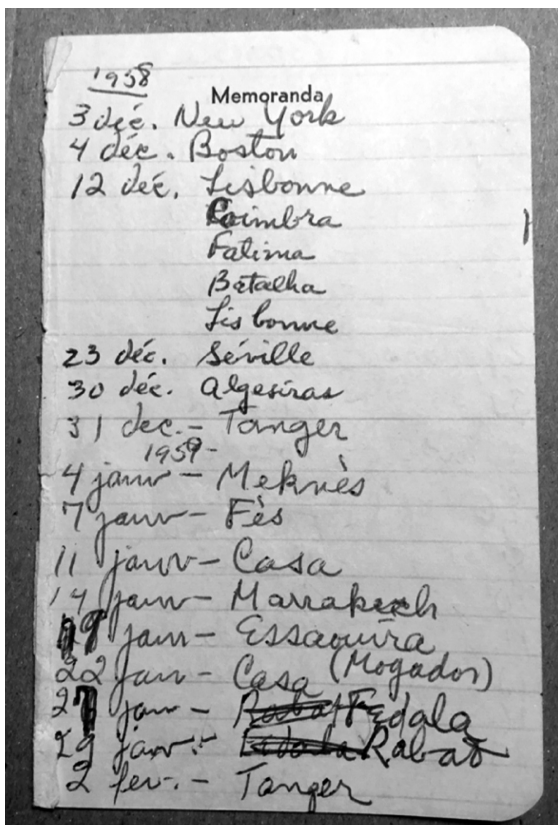 1958
Memoranda
3 déc. New York
4 déc. Boston
12 déc. Lisbonne
Coimbra
Fatima
Batalha
Lisbonne
23 déc. Séville
30 déc. Algesiras
31 dec. - Tanger
1959 -
4 janv - Meknès
7 janv - Fès
11 janv - Casa
14 janv - Marrakech
19 janv - Essaouira
(Mogador)
22 jan - Casa
27 jan - Fedala
29 janv. - Rabat
2 fev. - Tanger